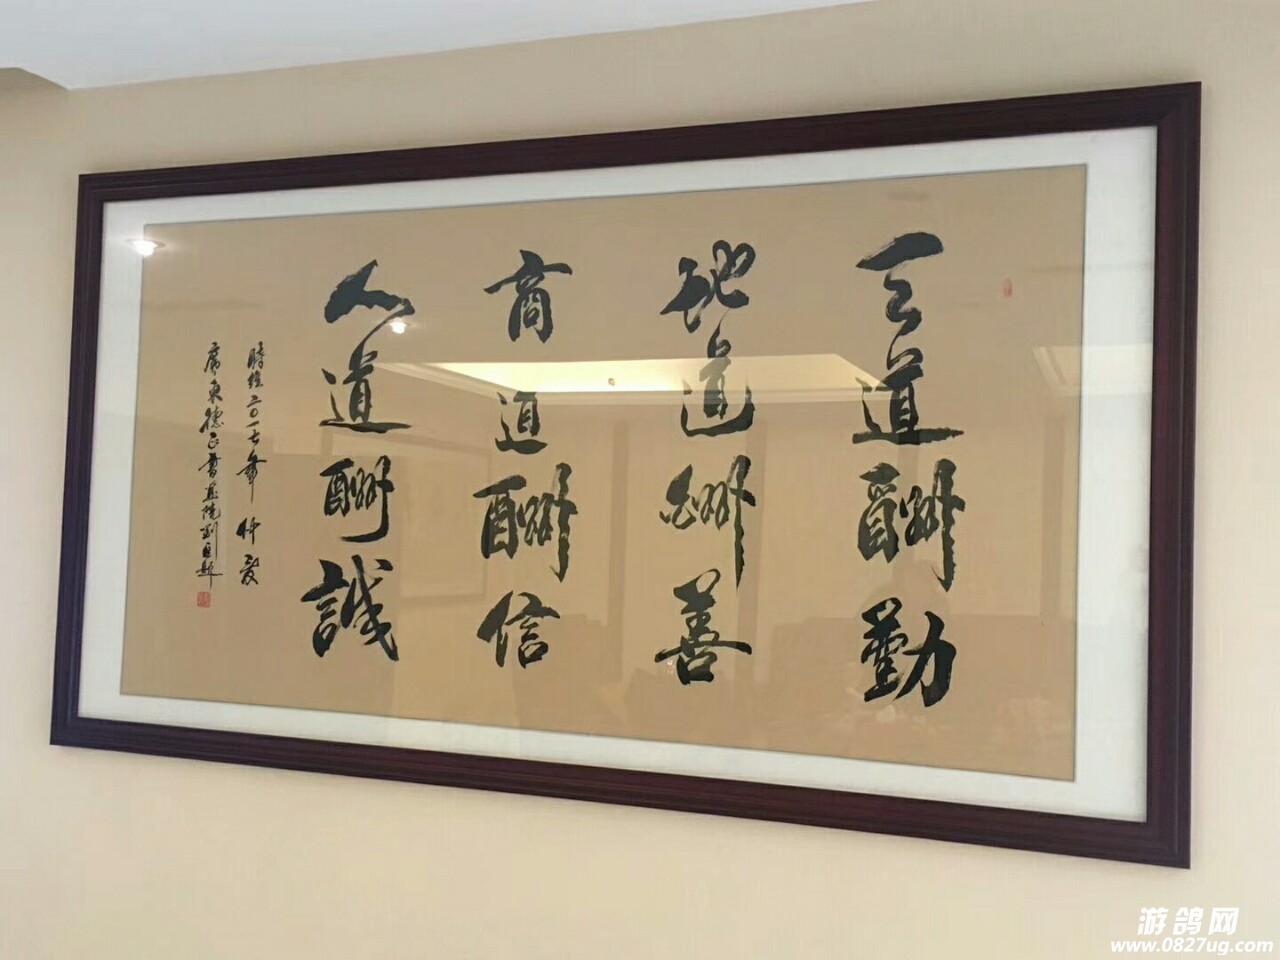 天道酬勤
地道酬善
商道酬信
人道酬誠
時維二〇一七年仲夏
游鸽网
www.0827ug.com